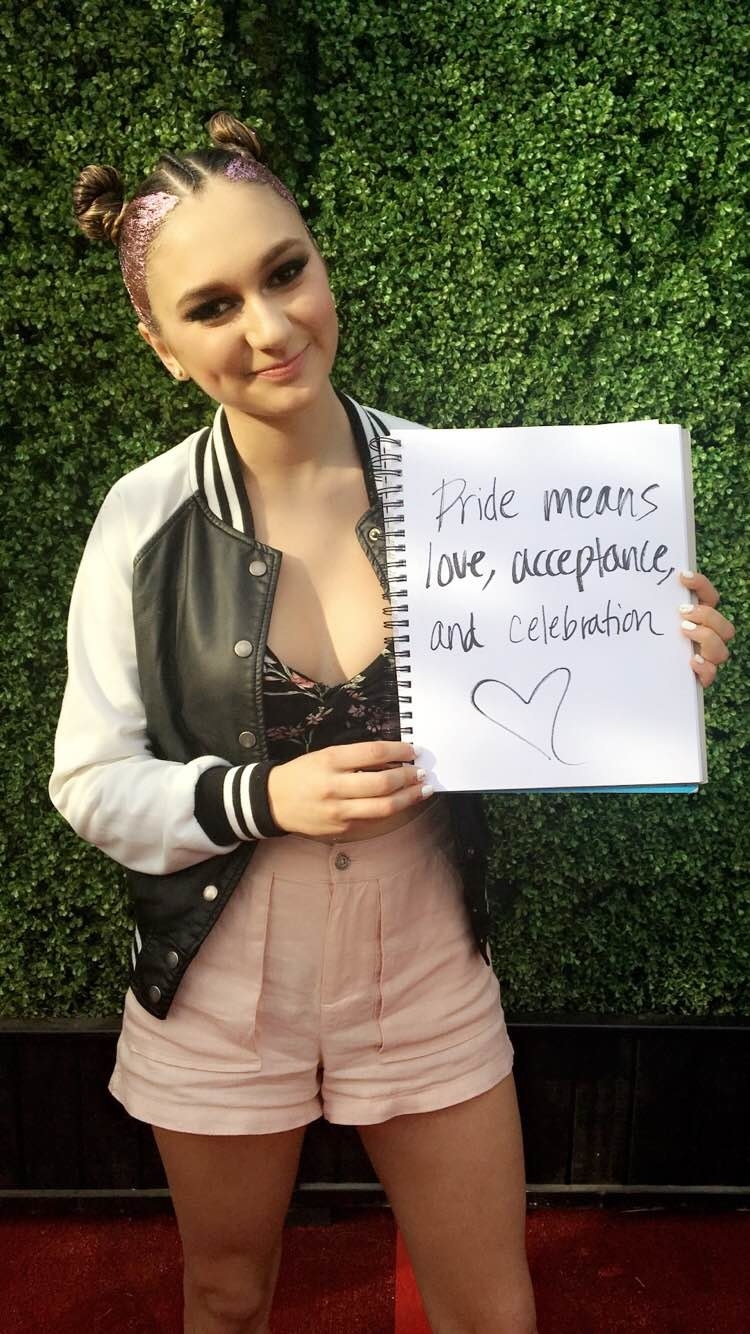 Pride means
love, acceptance,
and celebration